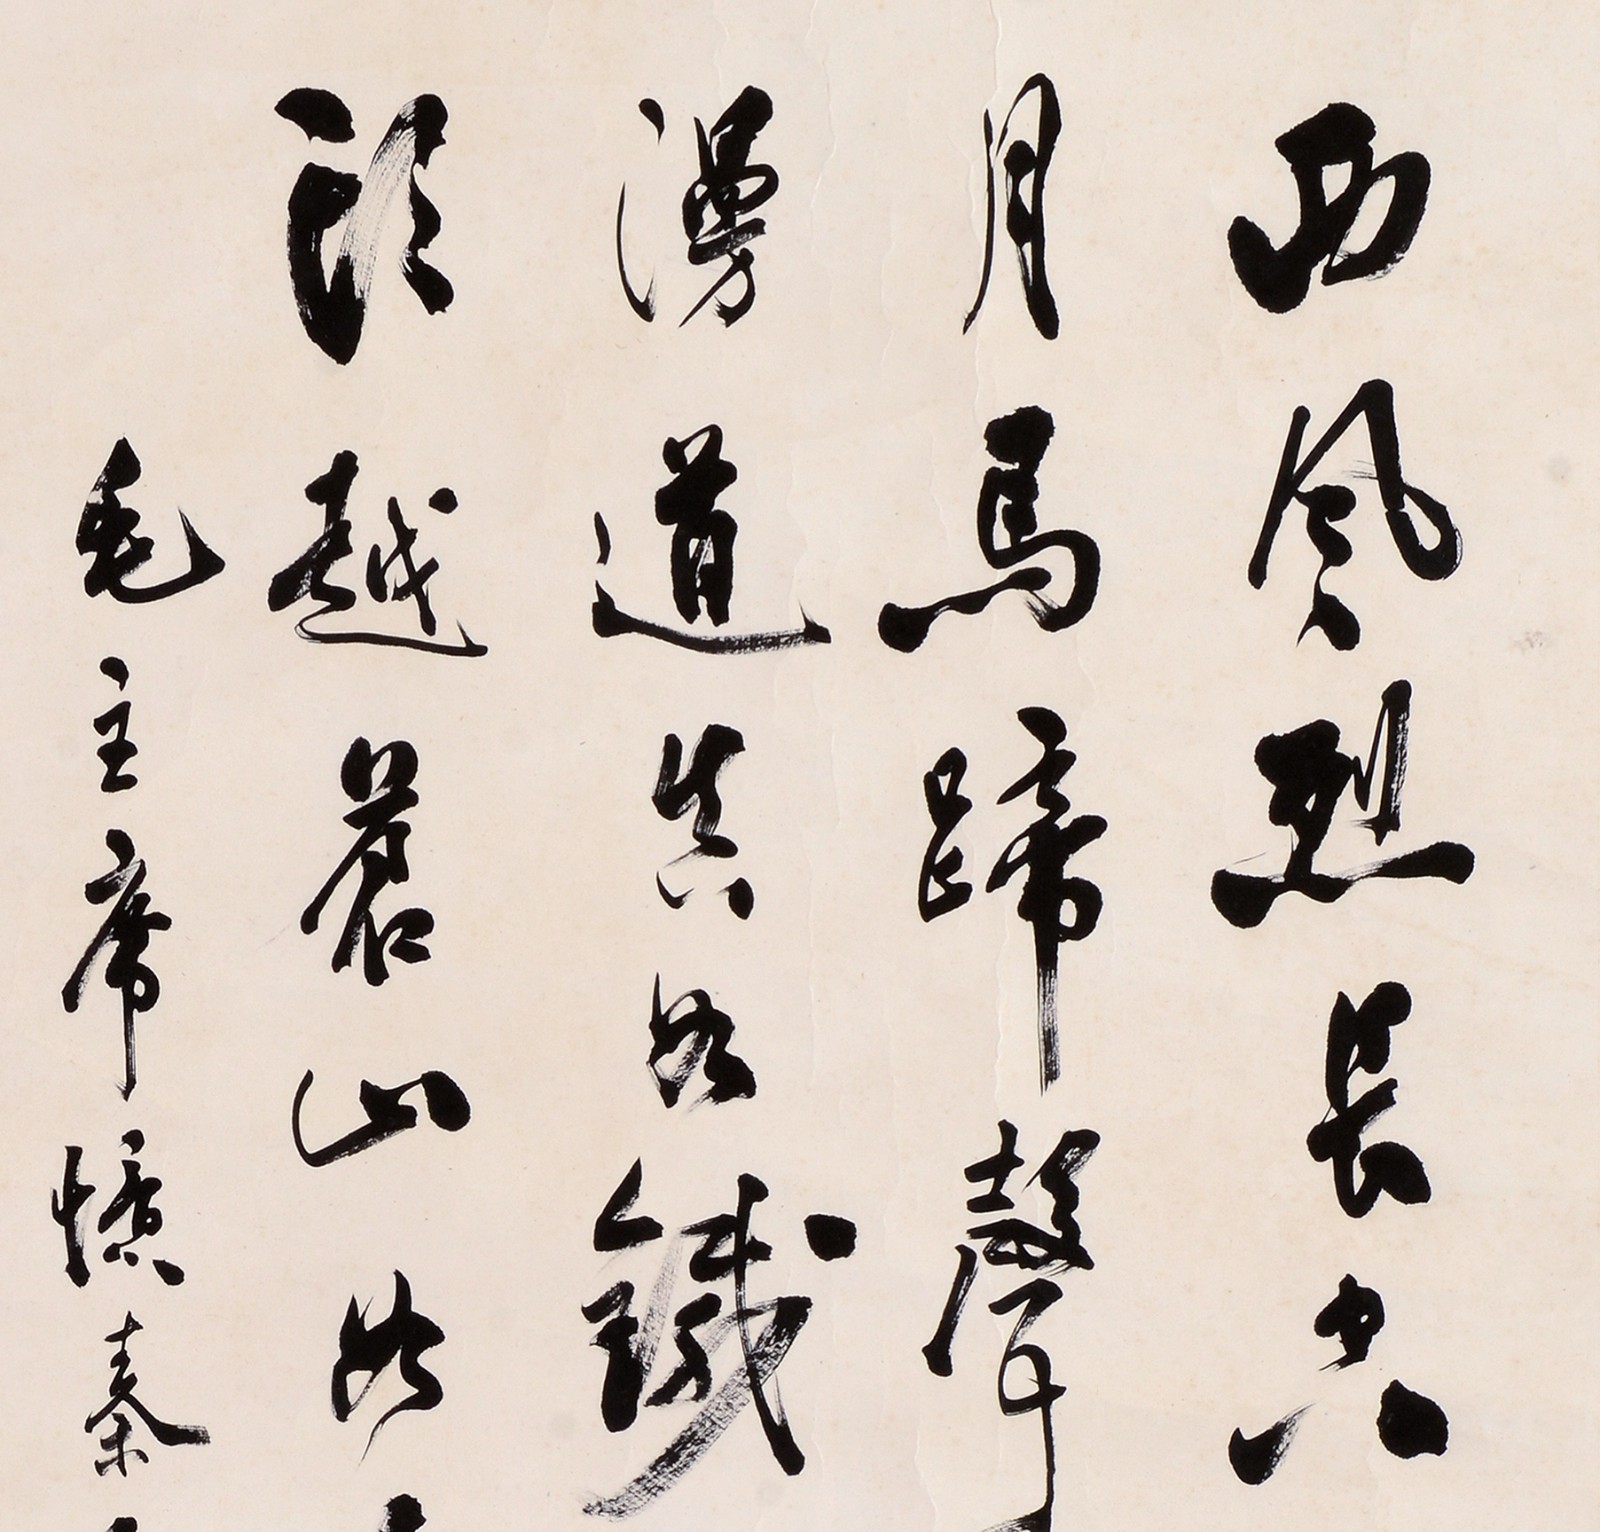 西風烈長空
月馬蹄聲
漫道真如鐵
頭越蒼山如
毛主席憶秦